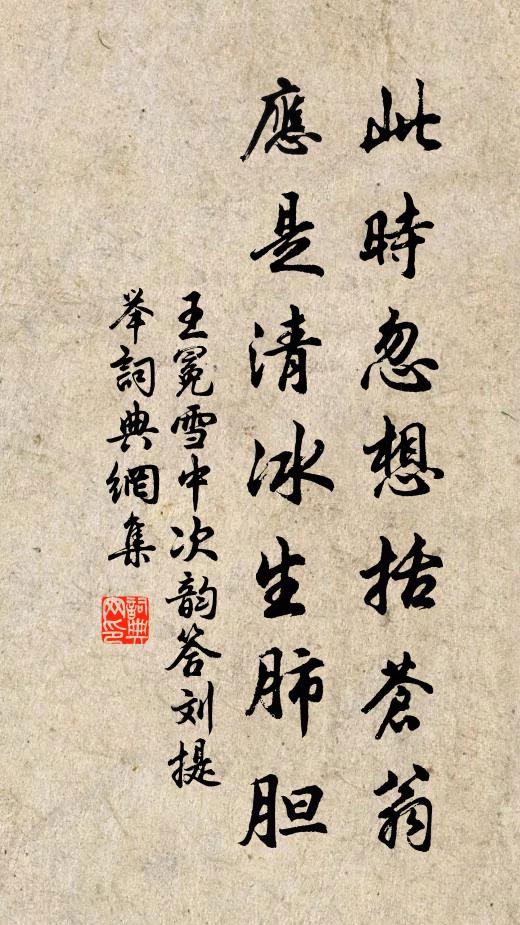 此時忽想括蒼翁
應是清冰生肺胆
王冕雪中次韵答刘提
举詞典網集
詞典
网印